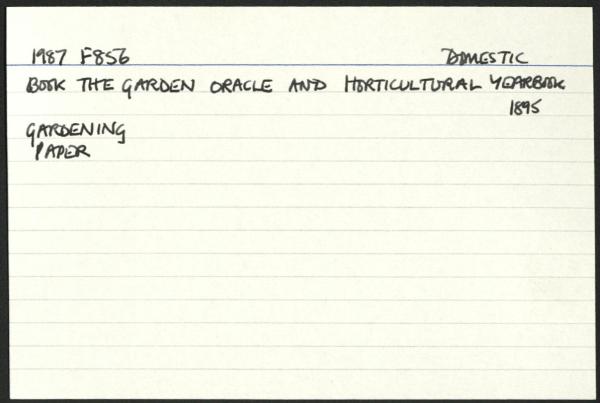 1987 F856 DOMESTIC
BOOK THE GARDEN ORACLE AND HORTICULTURAL YEARBOOK
1895
GARDENING
PAPER